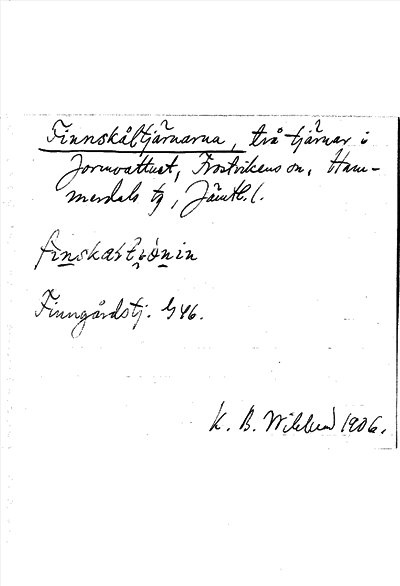 Finnskåltjärnarna, två tjärnar i
Jormvattnet, Frostvikens sn, Ham-
merdals tg, Jämtl. l.
finskartiònin
Finngårdstj. G 46.
K. B. Wiklund 1906.